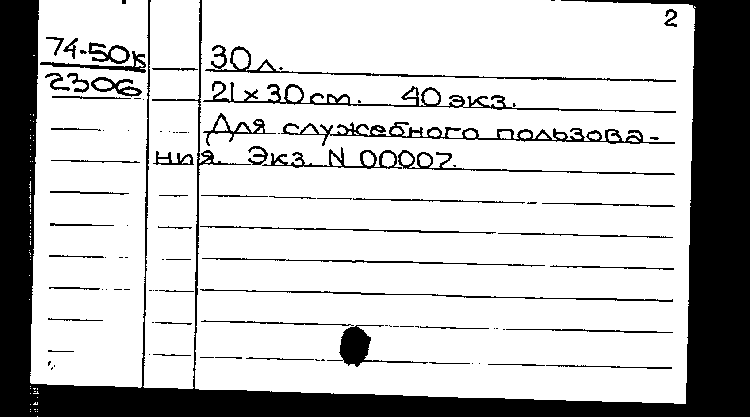 2
74-50к 30л.
2306 21×30 cm. 40 экз.
Для служебного пользова-
ния. Экз. N 00007.